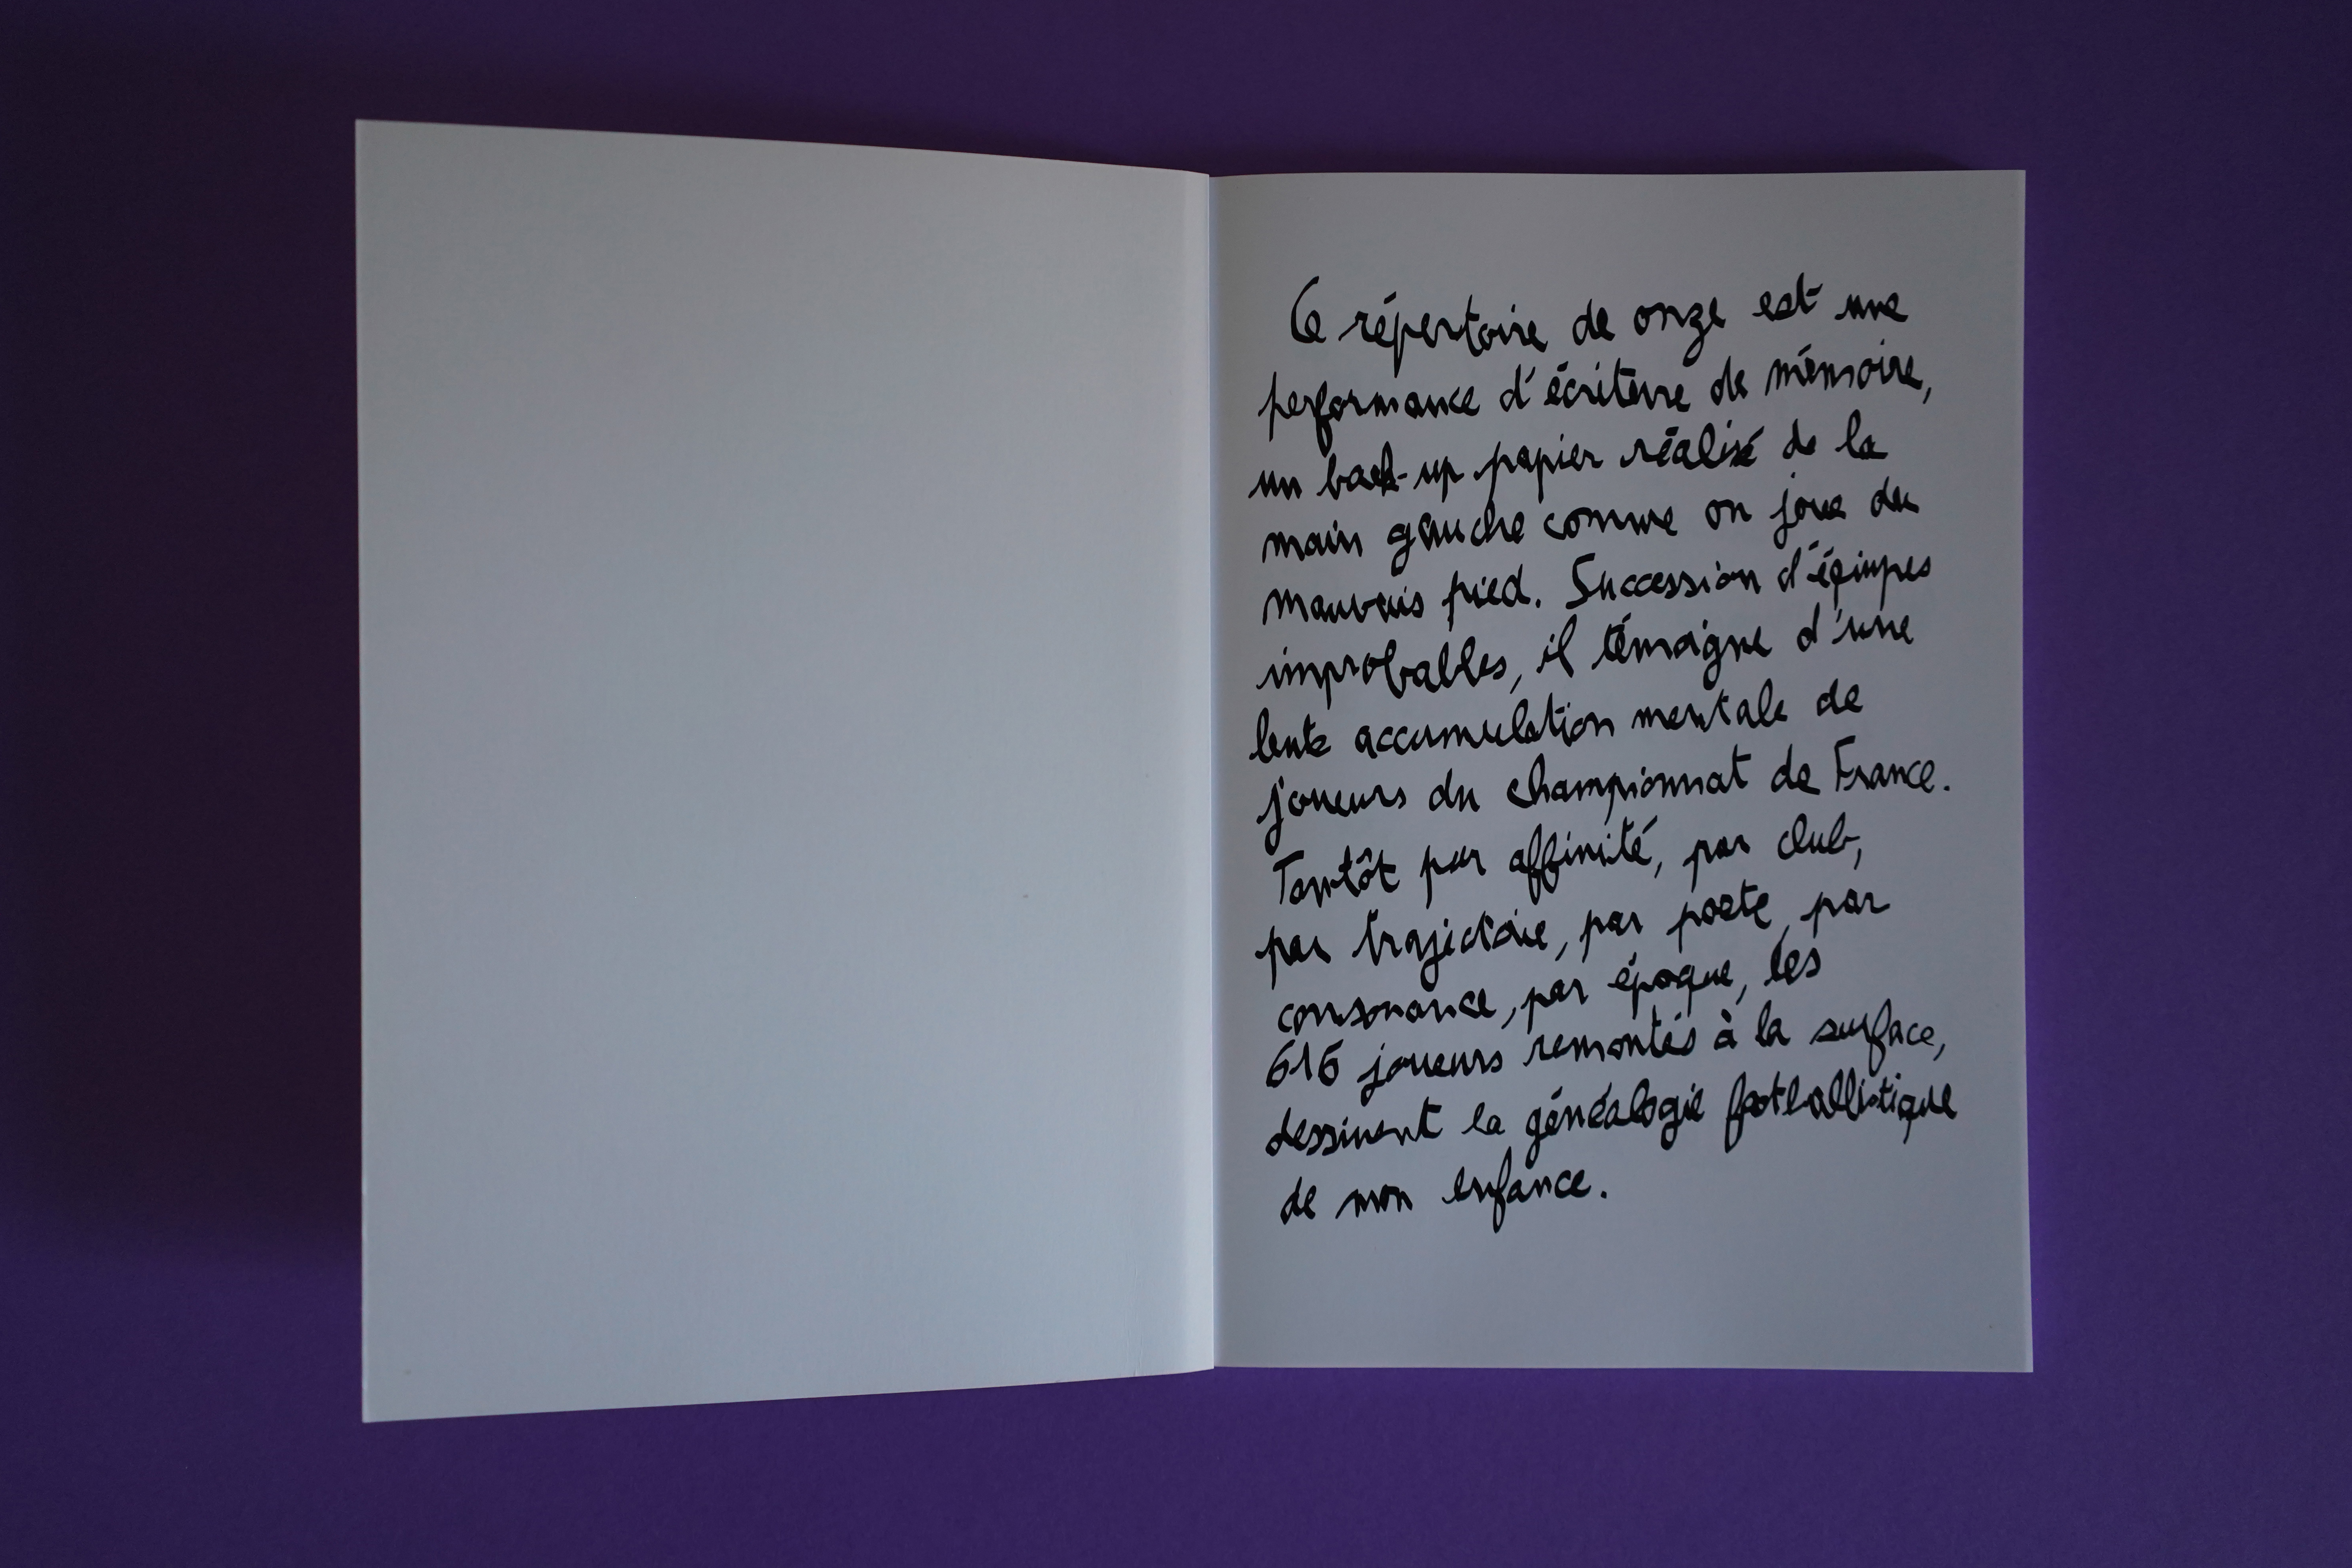 Ce répertoire de onze est une
performance d'écriture de mémoire,
un back-up papier réalisé de la
main gauche comme on joue du
mauvais pied. Succession d'équipes
improbables, il témoigne d'une
lente accumulation mentale de
joueurs du championnat de France.
Tantôt par affinité, par club,
par trajectoire, par poste, par
consonance, par époque, les
616 joueurs remontés à la surface,
dessinent la généalogie footballistique
de mon enfance.